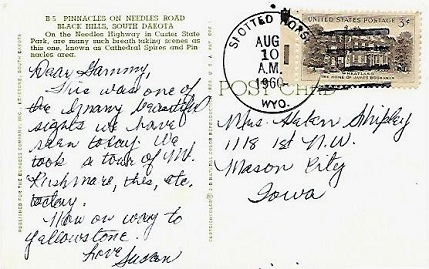 B 5 PINNACLES ON NEEDLES ROAD
BLACK HILLS, SOUTH DAKOTA
On the Needles Highway in Custer State
Park, are many such breath taking scenes as
this one, known as Cathedral Spires and Pin-
nacles area.
Dear Gammy,
This was one of
the many beautiful
sights we have
seen today. We
took a tour of Mt.
Rushmore, this, etc.
today.
Now on way to
Yellowstone.
Love, Susan
POST CARD
SLOTTED MOTSY
AUG
10
A.M.
1960
WYO.
UNITED STATES POSTAGE
3¢
WHEATLAND
THE HOME OF JAMES BUCHANAN
Mrs. Helen Shipley
1118 1st N.W.
Mason City
Iowa